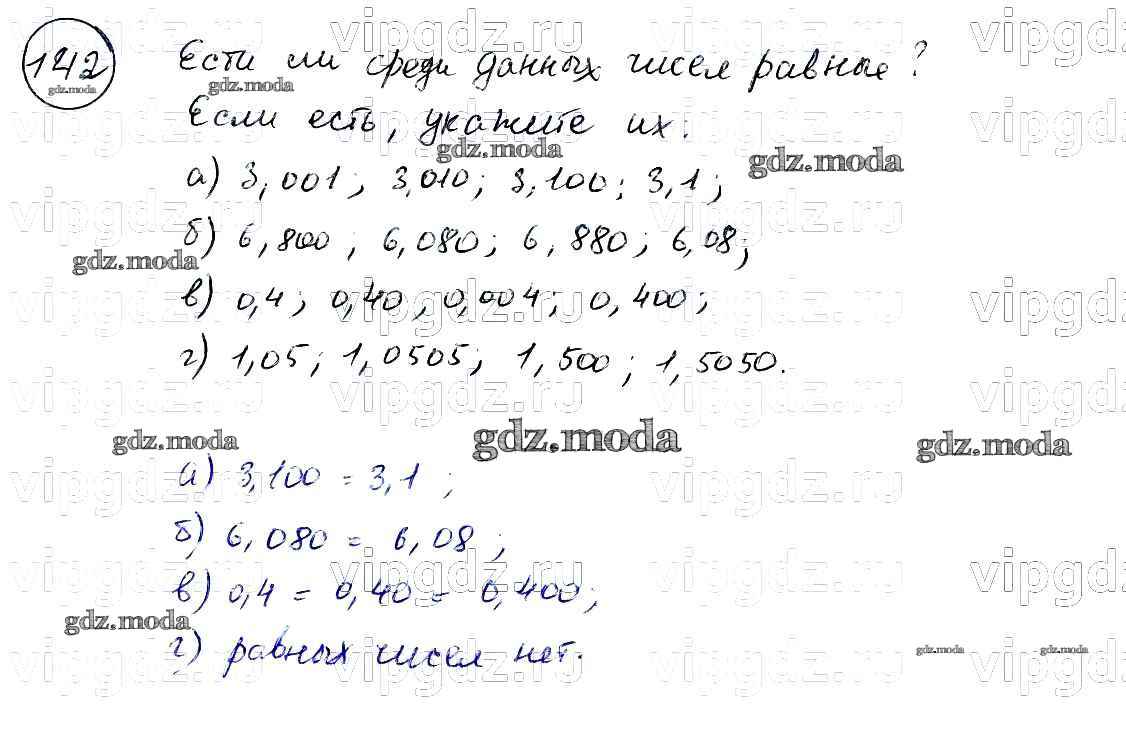 142 Есть ли среди данных чисел равные?
Если есть, укажите их:
а) 3,001; 3,010; 3,100; 3,1;
б) 6,800; 6,080; 6,880; 6,08;
в) 0,4; 0,40; 0,004; 0,400;
г) 1,05; 1,0505; 1,500; 1,5050.
а) 3,100 = 3,1;
б) 6,080 = 6,08;
в) 0,4 = 0,40 = 0,400;
г) равных чисел нет.
gdz.moda
vipgdz.ru